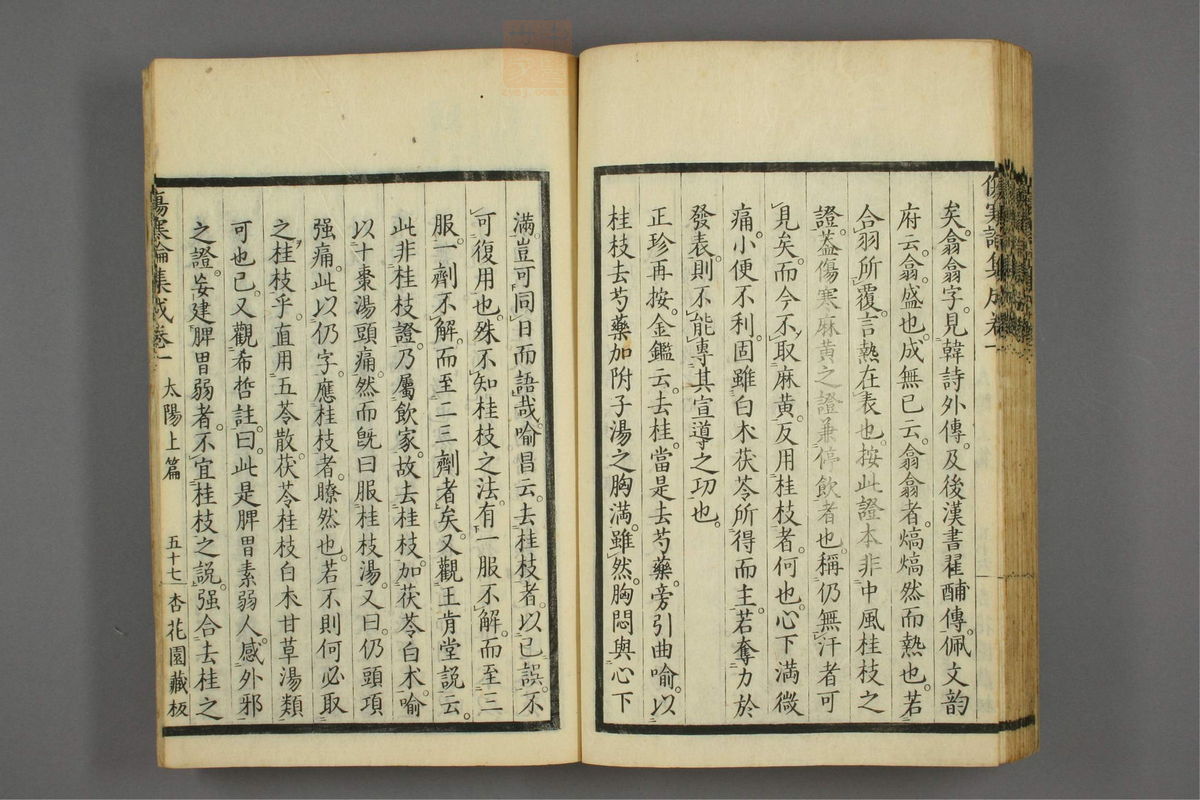 傷寒論集成卷一
矣。翕翕字。見韓詩外傳。及後漢書翟酺傳。佩文韵
府云。翕。盛也。成無已云。翕翕者。熇熇然而熱也。若
合羽所覆。言熱在表也。按此證本非中風桂枝之
證。蓋傷寒麻黃之證兼停飲者也。稱仍無汗者可
見矣。而今不取麻黃。反用桂枝者。何也。心下滿微
痛。小便不利。固雖白朮茯苓所得而主。若奪力於
發表。則不能專其宣導之功也。
正珍再按。金鑑云。去桂當是去芍藥。旁引曲喻。以
桂枝去芍藥加附子湯之胸滿。雖然。胸悶與心下
滿。豈可同日而語哉。喻昌云。去桂枝者。以已誤不
可復用也。殊不知桂枝之法。有一服不解。而至三
服。一劑不解。而至二三劑者矣。又觀王肯堂說云。
此非桂枝證。乃屬飲家。故去桂枝。加茯苓白朮。喻
以十棗湯頭痛。然而既曰服桂枝湯。又曰仍頭項
强痛。此以仍字。應桂枝者。瞭然也。若不則何必取
之桂枝乎。直用五苓散。茯苓桂枝白朮甘草湯類
可也已。又觀希哲註。曰。此是脾胃素弱人。感外邪
之證。妄建脾胃弱者。不宜桂枝之說。强合去桂之
傷寒論集成卷一 太陽上篇 五十七 杏花園藏板